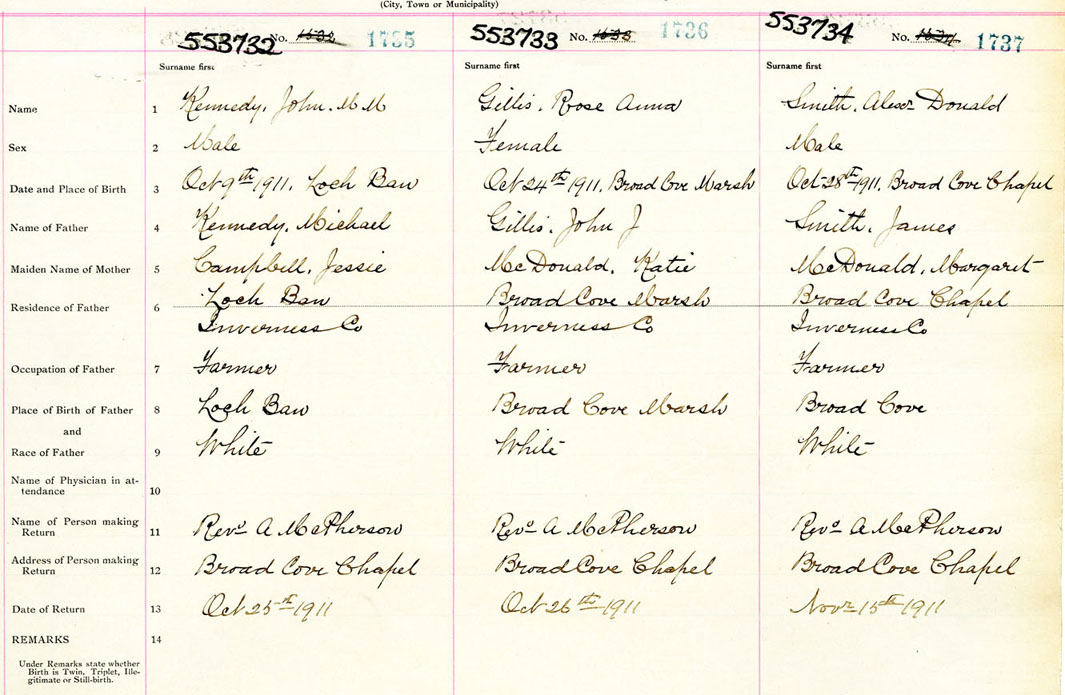 (City, Town or Municipality)
553732 No. 1735
553733 No. 1736
553734 No. 1737
Surname first Surname first Surname first
Name 1 Kennedy, John. M M Gillis, Rose Anna Smith, Alexr Donald
Sex 2 Male Female Male
Date and Place of Birth 3 Oct 9th 1911, Loch Ban Oct 24th 1911, Broad Cove Marsh Oct 28th 1911, Broad Cove Chapel
Name of Father 4 Kennedy, Michael Gillis, John J Smith, James
Maiden Name of Mother 5 Campbell, Jessie McDonald, Katie McDonald, Margaret
Residence of Father 6 Loch Ban Broad Cove Marsh Broad Cove Chapel
Inverness Co Inverness Co Inverness Co
Occupation of Father 7 Farmer Farmer Farmer
Place of Birth of Father 8 Loch Ban Broad Cove Marsh Broad Cove
and
Race of Father 9 White White White
Name of Physician in at-
tendance 10
Name of Person making
Return 11 Revd A McPherson Revd A McPherson Revd A McPherson
Address of Person making
Return 12 Broad Cove Chapel Broad Cove Chapel Broad Cove Chapel
Date of Return 13 Oct 25th 1911 Oct 26th 1911 Novr 15th 1911
REMARKS 14
Under Remarks state whether
Birth is Twin, Triplet, Ille-
gitimate or Still-birth.